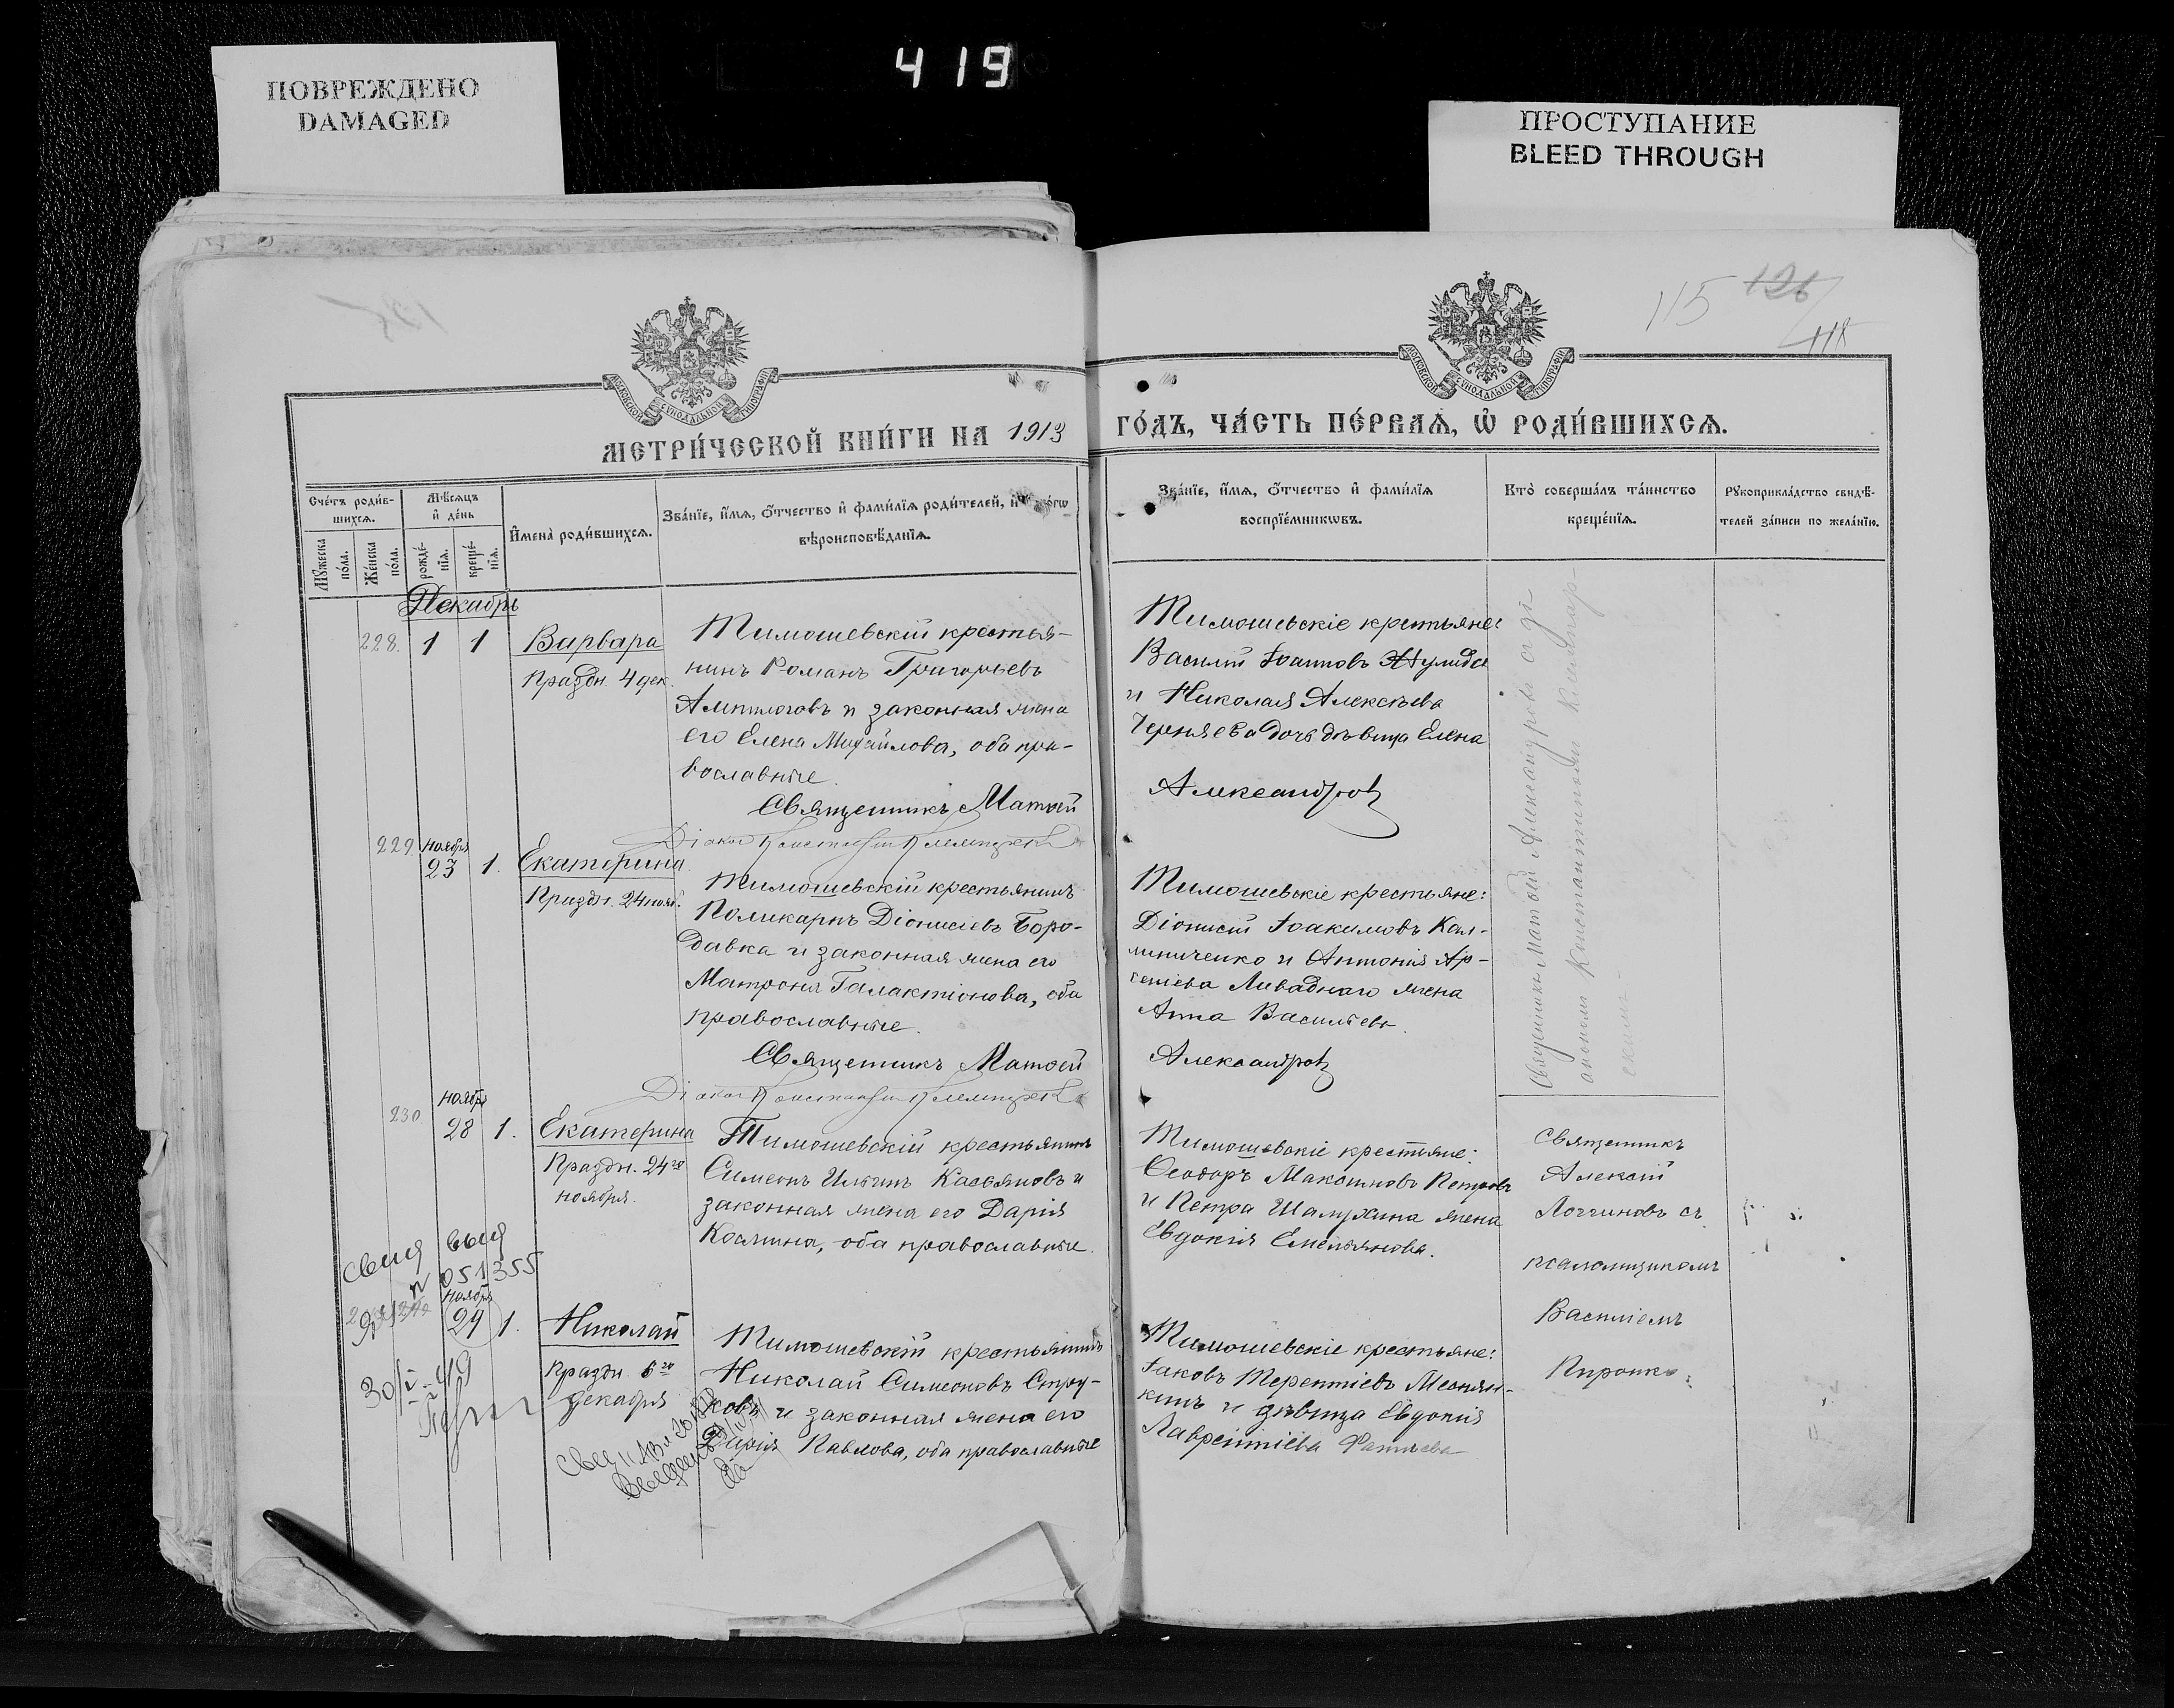 419
ПОВРЕЖДЕНО
DAMAGED
ПРОСТУПАНИЕ
BLEED THROUGH
115 126
118
МОСКОВСКОЙ СѴНОДАЛЬНОЙ ТИПОГРАФІИ
МОСКОВСКОЙ СѴНОДАЛЬНОЙ ТИПОГРАФІИ
МЕТРИ́ЧЕСКОЙ КНИ́ГИ НА 1913 ГО́ДЪ, ЧА́СТЬ ПЕ́РВАѦ, Ѡ҆ РОДИ́ВШИХСѦ.
Сче́тъ роди́в-
шихсѧ.
Мꙋ́жеска
по́ла.
Же́нска
по́ла.
Мѣ́сѧцъ
и҆ де́нь
рожде́-
нїѧ.
креще́-
нїѧ.
И҆мена̀ роди́вшихсѧ.
Зва́нїе, и҆́мѧ, ѻ҆́тчество и҆ фами́лїѧ роди́телей, и҆
вѣроисповѣ́данїѧ.
Зва́нїе, и҆́мѧ, ѻ҆́тчество и҆ фами́лїѧ
воспрїе́мникѡвъ.
Кто̀ соверша́лъ та́инство
креще́нїѧ.
Рꙋкоприкла́дство свидѣ́-
телей за́писи по жела́нїю.
Декабрь
228. 1 1 Варвара
Праздн. 4 дек.
Тимошевскій крестья-
нинъ Романъ Григорьевъ
и законная жена
его Елена Михайлова, оба пра-
вославные.
Священникъ Матѳей
Діаконъ Константинъ
Тимошевскіе крестьяне:
Василій Іоанновъ
и Николая Алексѣева
Черняева дочь дѣвица Елена
Александровъ
Священникъ Матѳей Александровъ съ ді-
акономъ Константиномъ
229 ноября
23 1. Екатерина
Праздн. 24 нояб.
Тимошевскій крестьянинъ
Поликарпъ Діонисіевъ Боро-
давка и законная жена его
Матрона Галактіонова, оба
православные.
Священникъ Матѳей
Діаконъ Константинъ
Тимошевскіе крестьяне:
Діонисій Іоакимовъ Кал-
линиченко и Антонія Ар-
сеніева Ливаднаго жена
Анна Васильев.
Александровъ
230. ноября
28 1. Екатерина
Праздн. 24го
ноября.
Тимошевскій крестьянинъ
Симеонъ Ильинъ Касьяновъ и
законная жена его Дарія
Косьмина, оба православные.
Тимошевскіе крестьяне:
Ѳеодоръ Максимовъ Петровъ
и Петра Шалухина жена
Евдокія Емельянова.
Священникъ
Алексій
Логгиновъ съ
псаломщикомъ
Василіемъ
051355
ноября
29 1. Николай
Праздн 6го
декабря
Тимошевскій крестьянинъ
Николай Симеоновъ Стру-
ковъ и законная жена его
Дарія Павлова, оба православные
Тимошевскіе крестьяне:
Іаковъ Терентіевъ
и дѣвица Евдокія
Лаврентіева